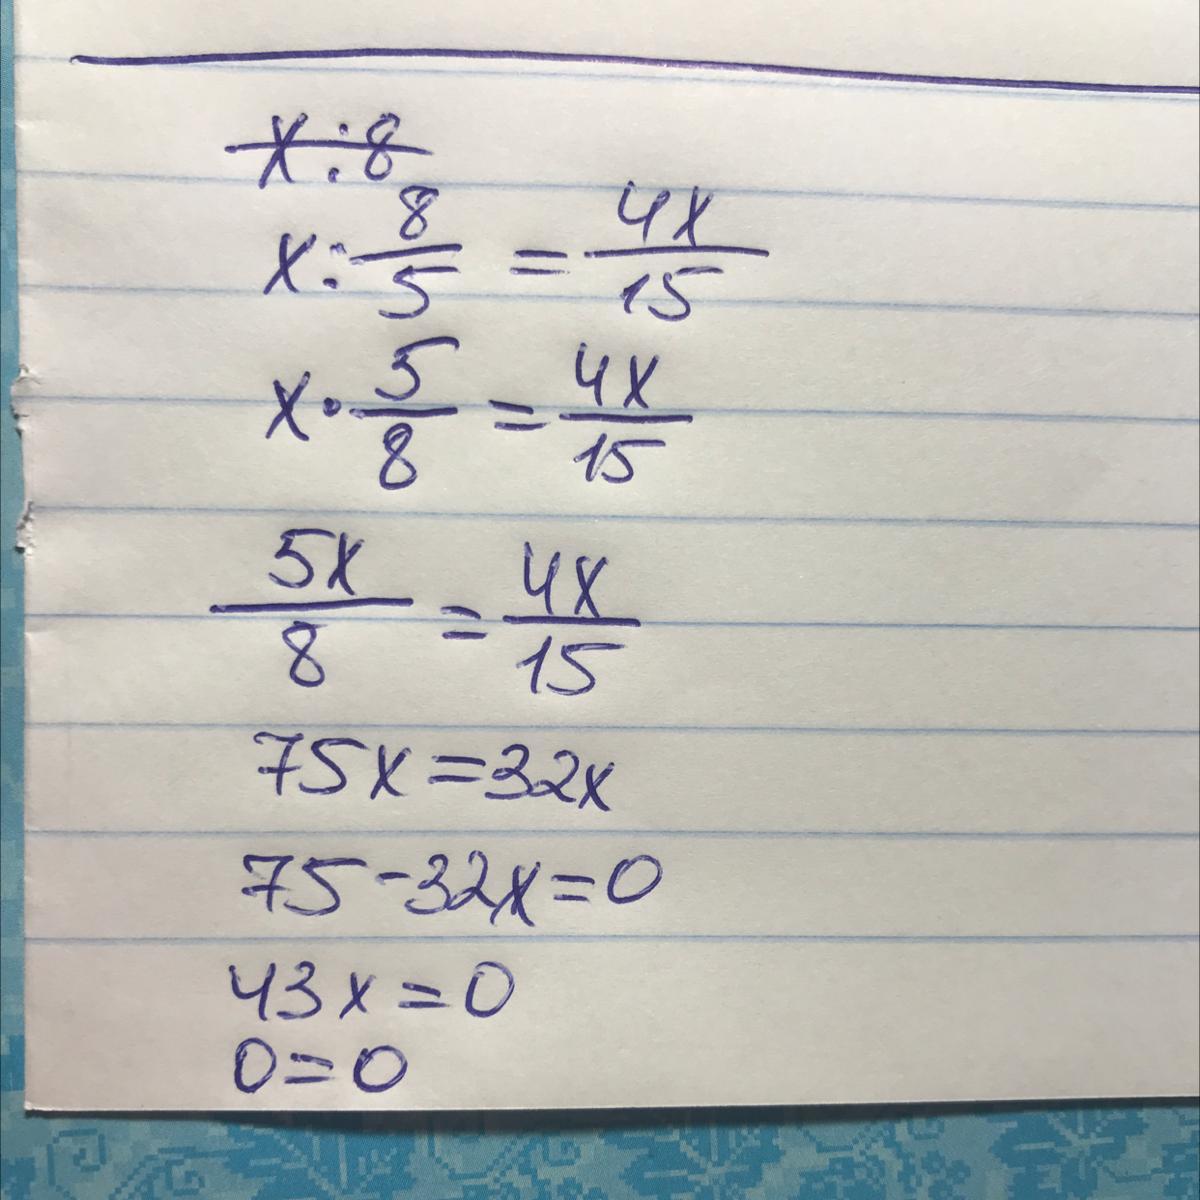 x:8
x:8/5 = 4x/15
x·5/8 = 4x/15
5x/8 = 4x/15
75x=32x
75-32x=0
43x=0
0=0